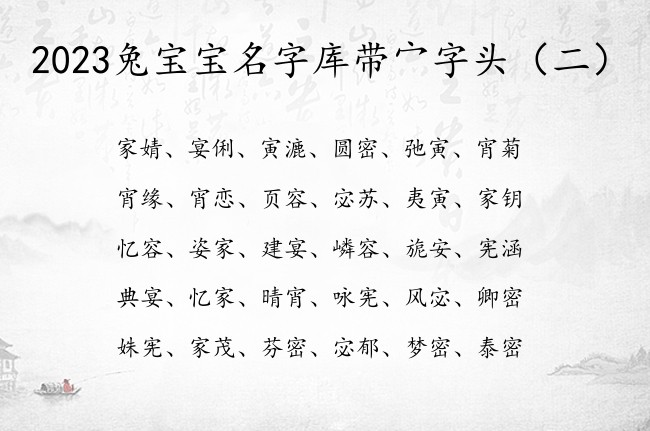 2023兔宝宝名字库带宀字头（二）
家婧、宴俐、寅漉、圆密、弛寅、宵菊
宵缘、宵恋、页容、宓苏、夷寅、家钥
忆容、姿家、建宴、嶙容、旎安、宪涵
典宴、忆家、晴宵、咏宪、风宓、卿密
姝宪、家茂、芬密、宓郁、梦密、泰密